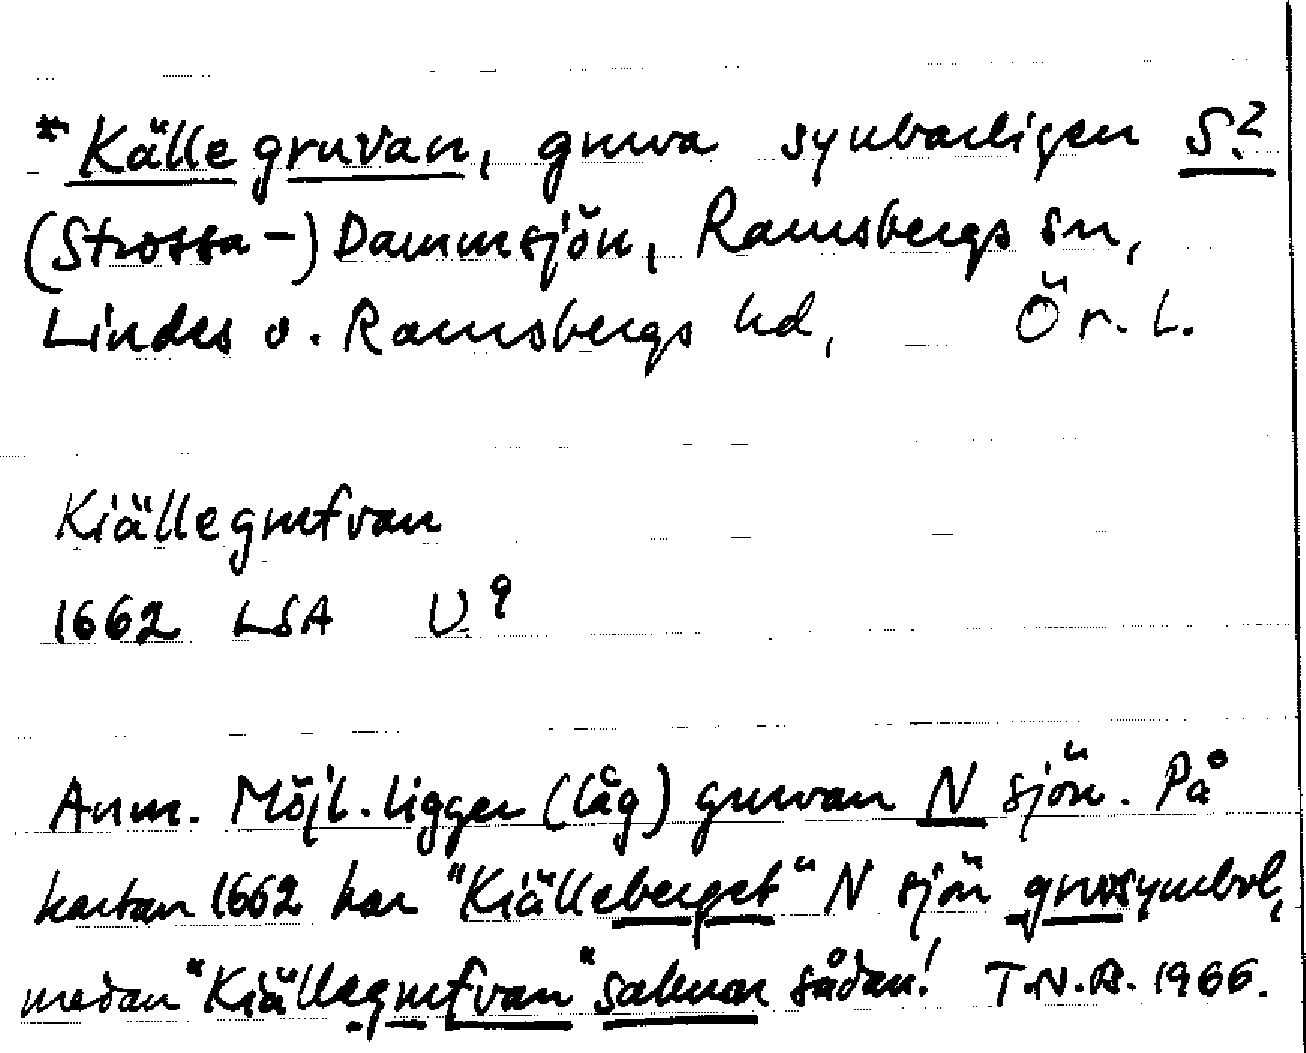 *Källegruvan, gruva synbarligen S?
(Strossa-) Dammsjön, Ramsbergs sn,
Lindes o. Ramsbergs hd, Ör. l.
Kiällegrufvan
1662 LSA U?
Anm. Möjl. ligger (låg) gruvan N sjön. På
kartan 1662 har "Kiälleberget" N sjön gruvsymbol,
medan "Kiällegrufvan" saknar sådan! T.N.A. 1966.